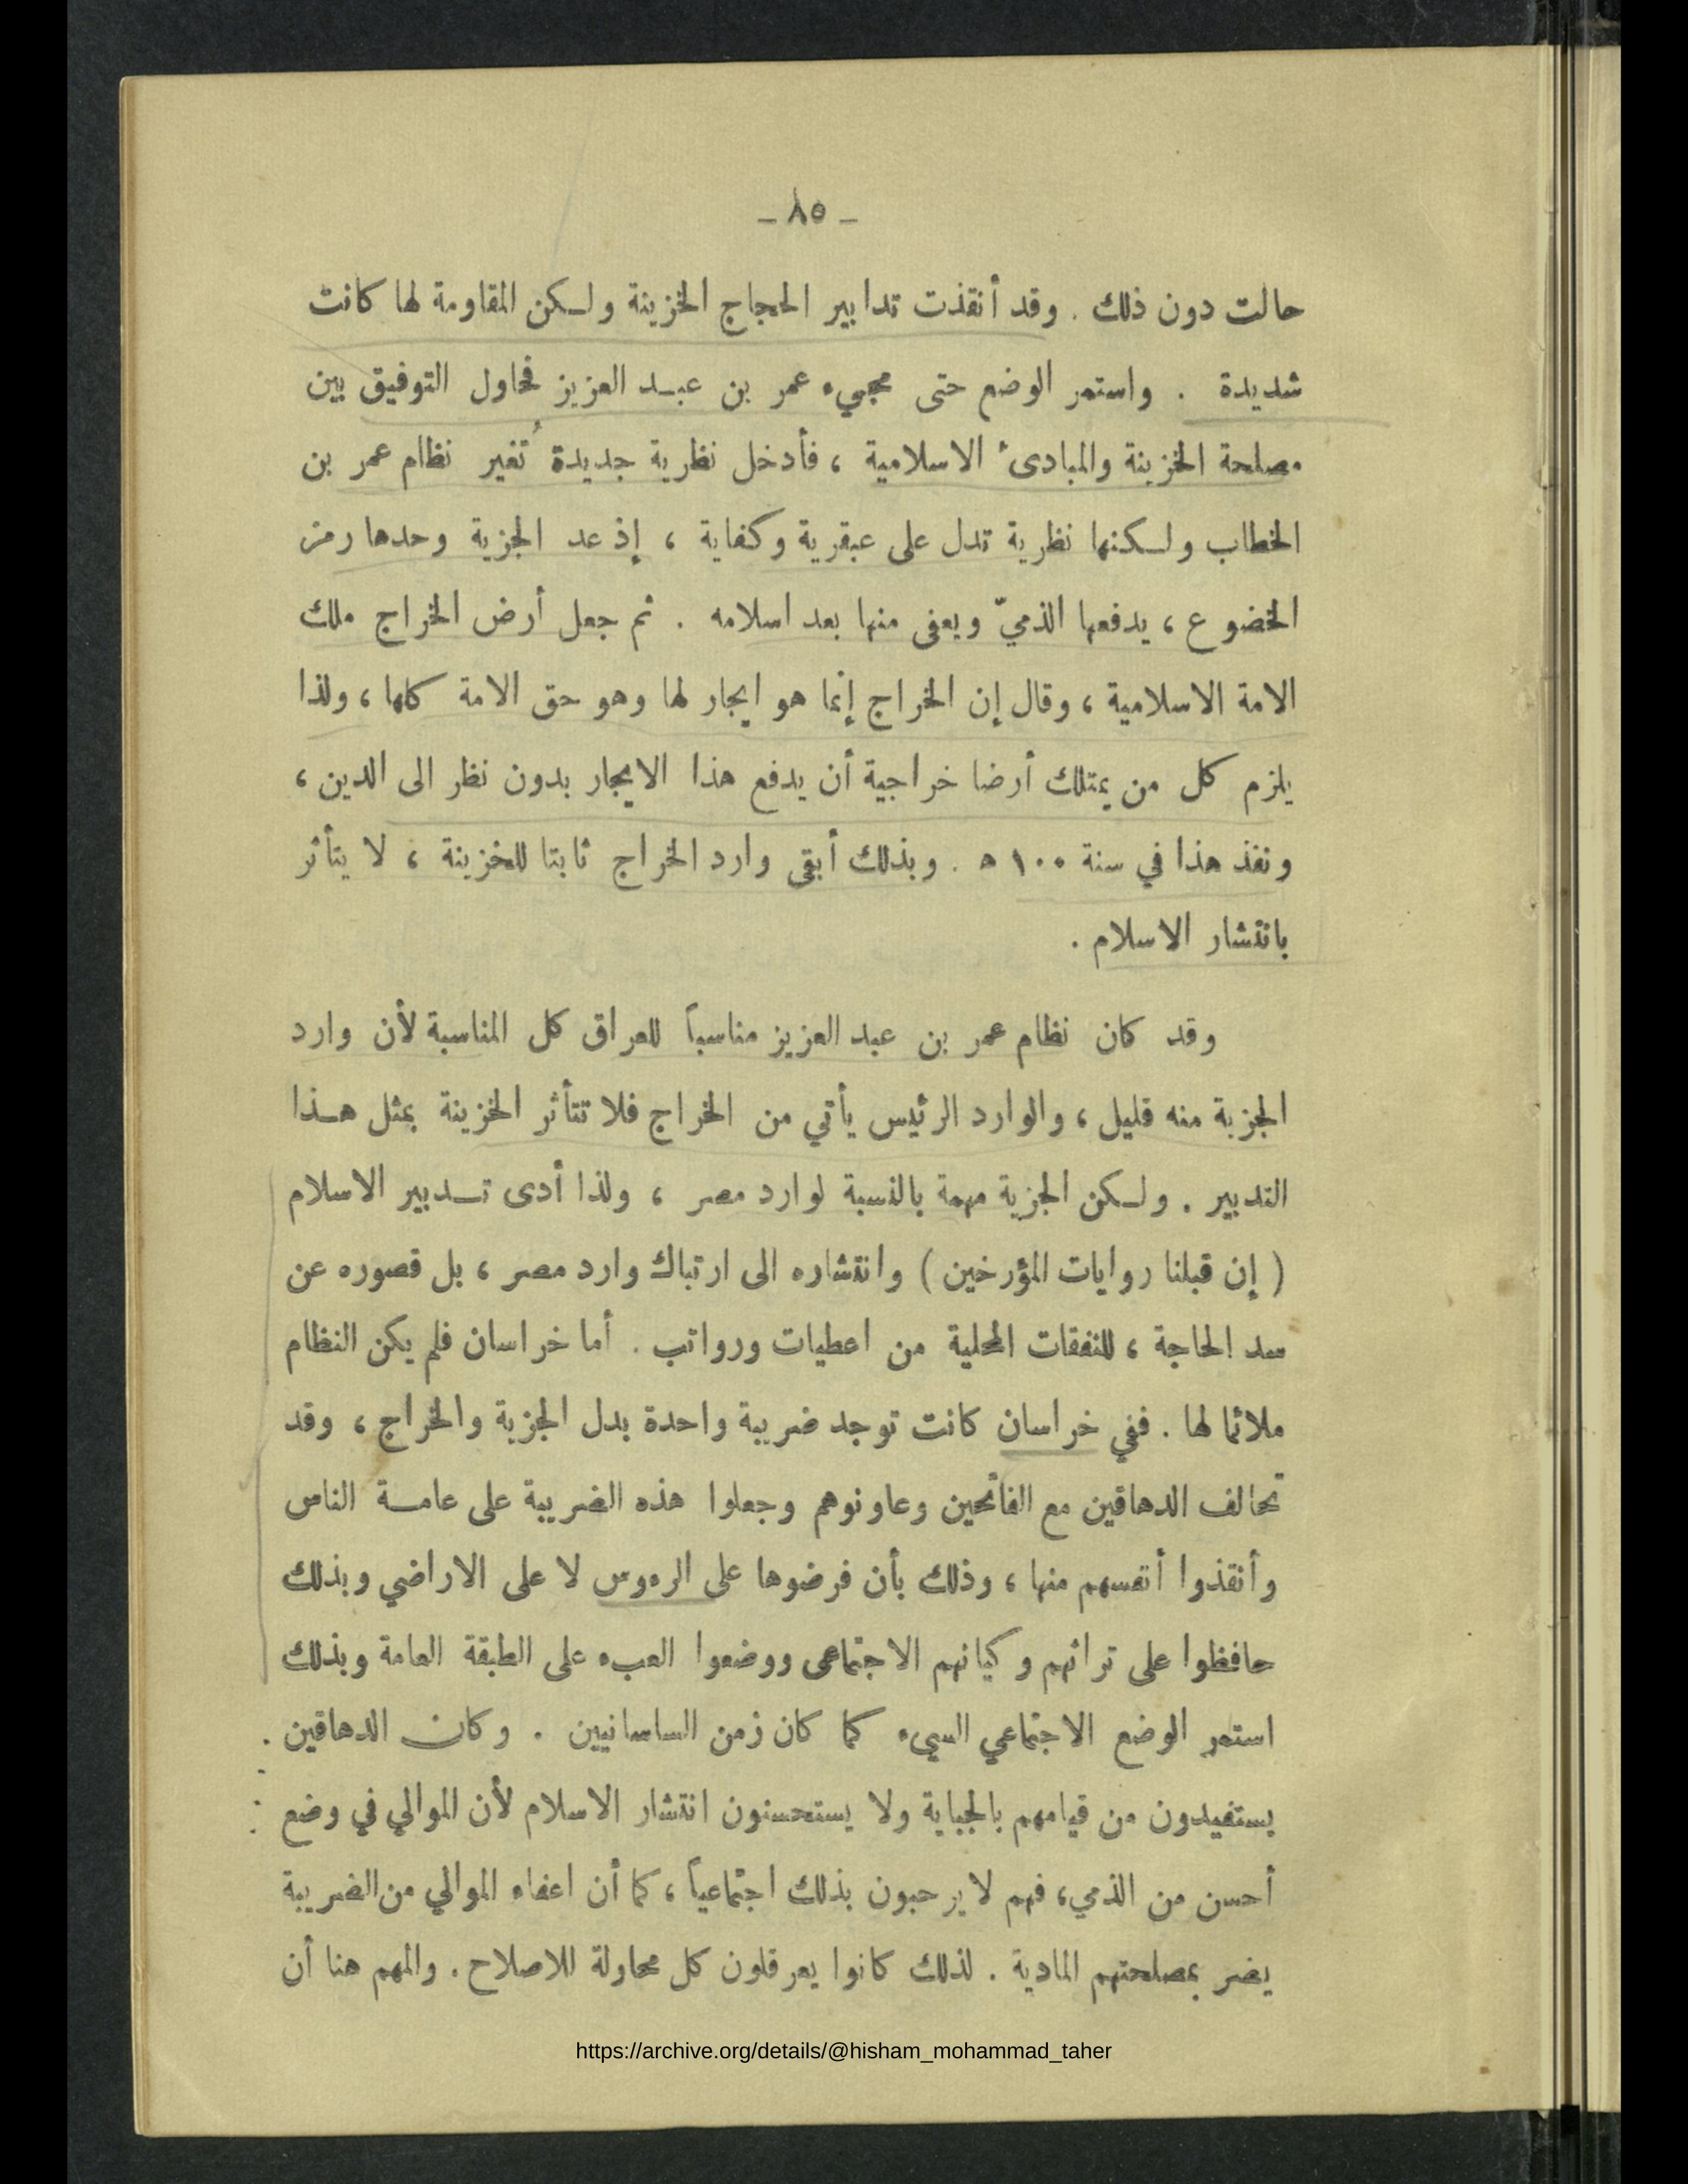 - ٨٥ -
حالت دون ذلك . وقد أنقذت تدابير الحجاج الخزينة ولـكن المقاومة لها كانت
شديدة . واستمر الوضع حتى مجيء عمر بن عبـد العزيز فحاول التوفيق بين
مصلحة الخزينة والمبادئ الاسلامية ، فأدخل نظرية جديدة تُغير نظام عمر بن
الخطاب ولـكنها نظرية تدل على عبقرية وكفاية ، إذ عد الجزية وحدها رمز
الخضوع ، يدفعها الذميّ ويعفى منها بعد اسلامه . ثم جعل أرض الخراج ملك
الامة الاسلامية ، وقال إن الخراج إنما هو ايجار لها وهو حق الامة كلها ، ولذا
يلزم كل من يمتلك أرضا خراجية أن يدفع هذا الايجار بدون نظر الى الدين ،
ونفذ هذا في سنة ١٠٠ ه . وبذلك أبقى وارد الخراج ثابتا للخزينة ، لا يتأثر
بانتشار الاسلام .
وقد كان نظام عمر بن عبد العزيز مناسباً للعراق كل المناسبة لأن وارد
الجزية منه قليل ، والوارد الرئيس يأتي من الخراج فلا تتأثر الخزينة بمثل هـذا
التدبير . ولـكن الجزية مهمة بالنسبة لوارد مصر ، ولذا أدى تـدبير الاسلام
( إن قبلنا روايات المؤرخين ) وانتشاره الى ارتباك وارد مصر ، بل قصوره عن
سد الحاجة ، للنفقات المحلية من اعطيات ورواتب . أما خراسان فلم يكن النظام
ملائما لها . ففي خراسان كانت توجد ضريبة واحدة بدل الجزية والخراج ، وقد
تحالف الدهاقين مع الفاتحين وعاونوهم وجعلوا هذه الضريبة على عامـة الناس
وأنقذوا أنفسهم منها ، وذلك بأن فرضوها على الرءوس لا على الاراضي وبذلك
حافظوا على تراثهم وكيانهم الاجتماعى ووضعوا العبء على الطبقة العامة وبذلك
استمر الوضع الاجتماعي السيء كما كان زمن الساسانيين . وكان الدهاقين .
يستفيدون من قيامهم بالجباية ولا يستحسنون انتشار الاسلام لأن الموالي في وضع
أحسن من الذمي، فهم لا يرحبون بذلك اجتماعياً ، كما أن اعفاء الموالي من الضريبة
يضر بمصلحتهم المادية . لذلك كانوا يعرقلون كل محاولة للاصلاح . والمهم هنا أن
https://archive.org/details/@hisham_mohammad_taher